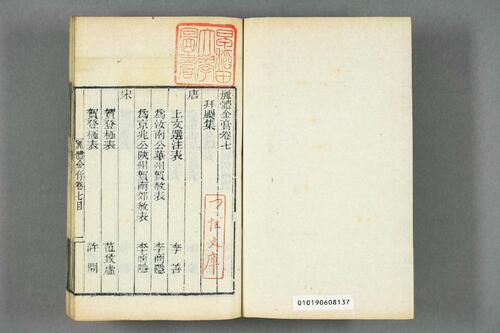 儷體金膏卷七
拜颺集
唐
上文選注表 李善
爲汝南公華州賀赦表 李商隱
爲京兆公陝州賀南郊赦表 李商隱
宋
賀登極表 范致虛
賀登極表 許開
儷體金膏卷七目 一
早稻田大學圖書
010190608137